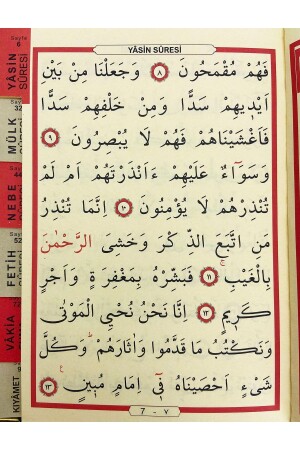 Sayfa
6
YÂSİN
SÛRESİ
32
MÜLK
SÛRESİ
44
NEBE
SÛRESİ
52
FETİH
SÛRESİ
VÂKIA
KIYÂMET
YÂSİN SÛRESİ
فَهُمْ مُقْمَحُونَ ﴿٨﴾ وَجَعَلْنَا مِنْ بَيْنِ
اَيْدِيهِمْ سَدًّا وَمِنْ خَلْفِهِمْ سَدًّا
فَاَغْشَيْنَاهُمْ فَهُمْ لَا يُبْصِرُونَ ﴿٩﴾
وَسَوَٓاءٌ عَلَيْهِمْ ءَاَنْذَرْتَهُمْ اَمْ لَمْ
تُنْذِرْهُمْ لَا يُؤْمِنُونَ ﴿١٠﴾ اِنَّمَا تُنْذِرُ
مَنِ اتَّبَعَ الذِّكْرَ وَخَشِىَ الرَّحْمٰنَ
بِالْغَيْبِ ﴿١١﴾ فَبَشِّرْهُ بِمَغْفِرَةٍ وَاَجْرٍ
كَرِيمٍ ﴿١٢﴾ اِنَّا نَحْنُ نُحْيِى الْمَوْتٰى
وَنَكْتُبُ مَا قَدَّمُوا وَاٰثَارَهُمْ وَكُلَّ
شَىْءٍ اَحْصَيْنَاهُ فِٓى اِمَامٍ مُبِينٍ ﴿١٣﴾
7 - ٧